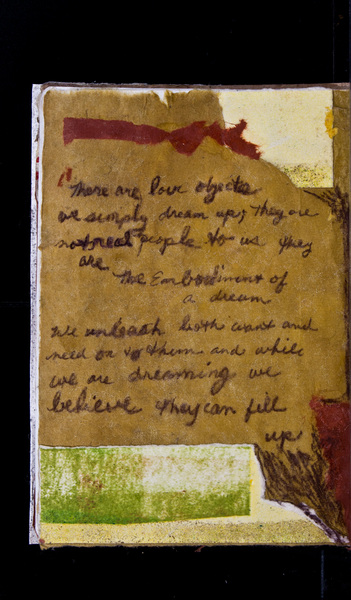 "There are love objects
we simply dream up, They are
not real people to us they
are
The Embodiment of
a dream
We unleash both want and
need on to them and while
we are dreaming we
believe they can fill
up